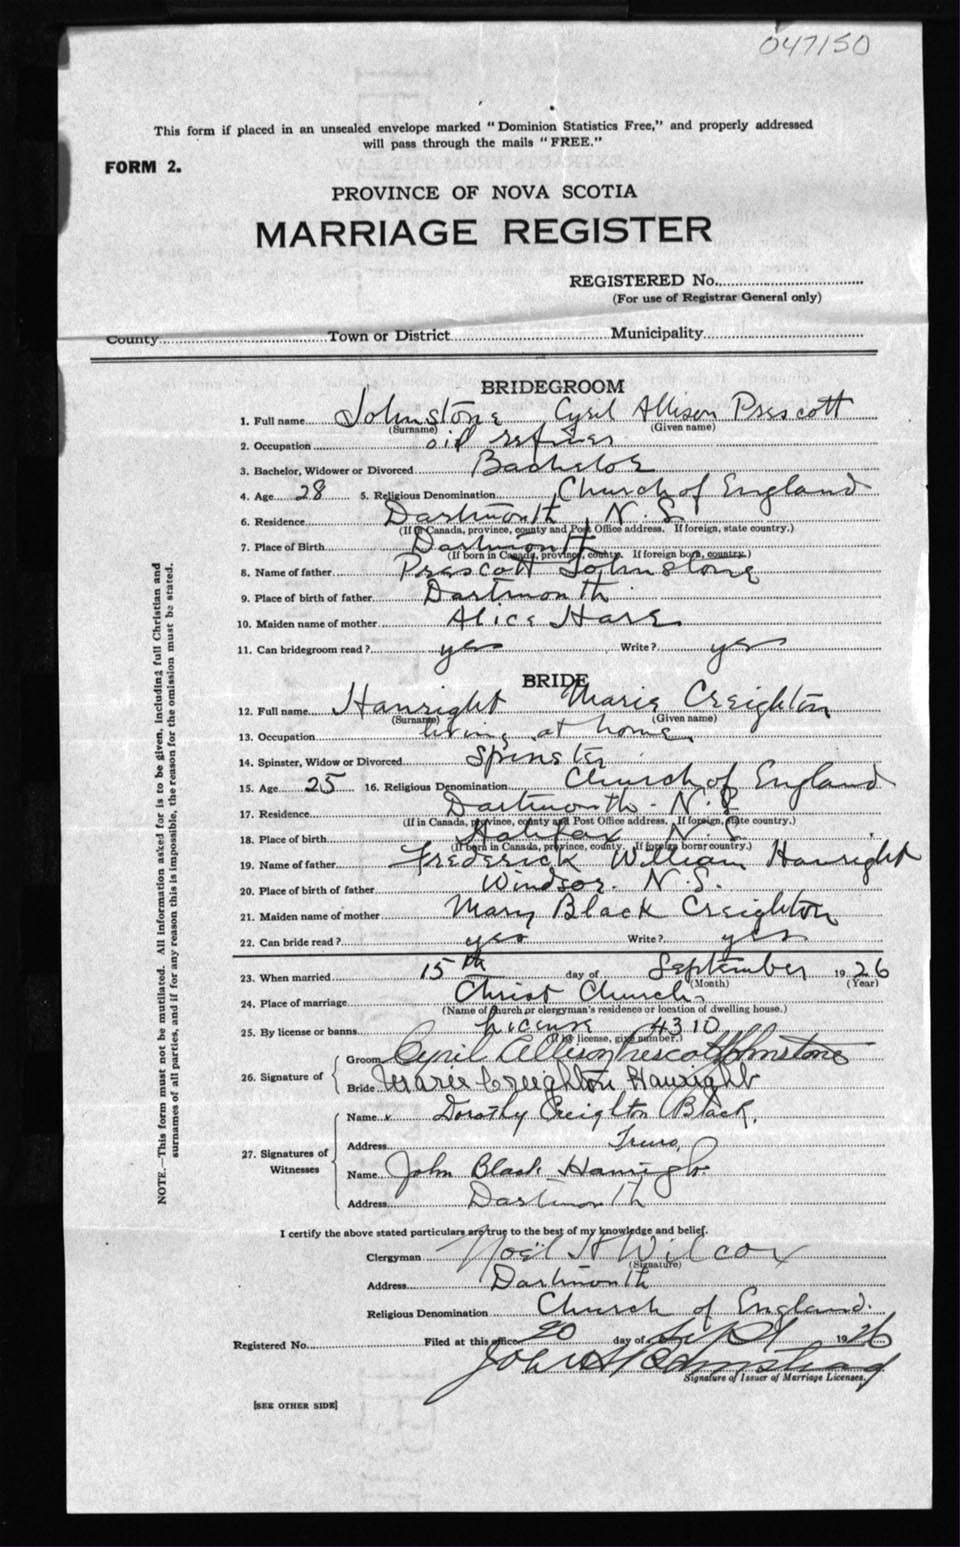 047150
This form if placed in an unsealed envelope marked "Dominion Statistics Free," and properly addressed
will pass through the mails "FREE."
FORM 2.
PROVINCE OF NOVA SCOTIA
MARRIAGE REGISTER
REGISTERED No.
(For use of Registrar General only)
County Town or District Municipality
BRIDEGROOM
1. Full name Johnstone Cyril Allison Prescott
(Surname) (Given name)
2. Occupation oil refiner
3. Bachelor, Widower or Divorced Bachelor
4. Age 28 5. Religious Denomination Church of England
6. Residence Dartmouth N.S.
(If in Canada, province, county and Post Office address. If foreign, state country.)
7. Place of Birth Dartmouth
(If born in Canada, province, county. If foreign born, country.)
8. Name of father Prescott Johnstone
9. Place of birth of father Dartmouth
10. Maiden name of mother Alice Hare
11. Can bridegroom read? yes Write? yes
BRIDE
12. Full name Hanright Marie Creighton
(Surname) (Given name)
13. Occupation living at home
14. Spinster, Widow or Divorced Spinster
15. Age 25 16. Religious Denomination Church of England
17. Residence Dartmouth - N.S
(If in Canada, province, county and Post Office address. If foreign, state country.)
18. Place of birth Halifax N.S.
(If born in Canada, province, county. If foreign born, country.)
19. Name of father Frederick William Hanright
20. Place of birth of father Windsor. N.S.
21. Maiden name of mother Mary Black Creighton
22. Can bride read? yes Write? yes
23. When married 15th day of September 1926
(Month) (Year)
24. Place of marriage Christ Church,
(Name of church or clergyman's residence or location of dwelling house.)
25. By license or banns License 4310
(If by license, give number.)
26. Signature of Groom Cyril Allison Prescott Johnstone
Bride Marie Creighton Hanright
27. Signatures of Witnesses Name Dorothy Creighton Black.
Address Truro,
Name John Black Hanright
Address Dartmouth
I certify the above stated particulars are true to the best of my knowledge and belief.
Clergyman Noël H Wilcox
(Signature)
Address Dartmouth
Religious Denomination Church of England.
Registered No. Filed at this office 20 day of Sept 1926
Signature of Issuer of Marriage Licenses.
[SEE OTHER SIDE]
NOTE.—This form must not be mutilated. All information asked for is to be given, including full Christian and
surnames of all parties, and if for any reason this is impossible, the reason for the omission must be stated.